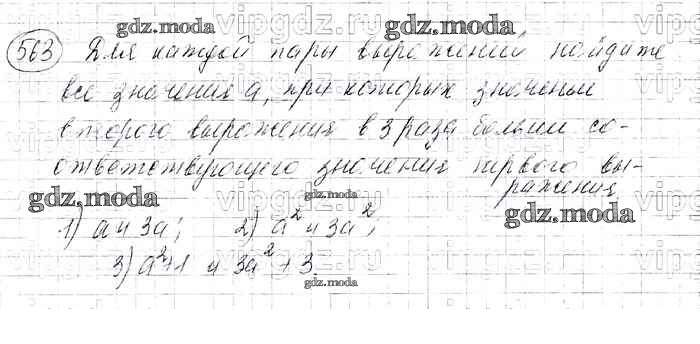 gdz.moda
gdz.moda
563 Для каждой пары выражений найдите
все значения a, при которых значение
второго выражения в 3 раза больше со-
ответствующего значения первого вы-
ражения
gdz.moda
gdz.moda
gdz.moda
1) a и 3a; 2) a² и 3a²;
3) a²+1 и 3a²+3.
gdz.moda